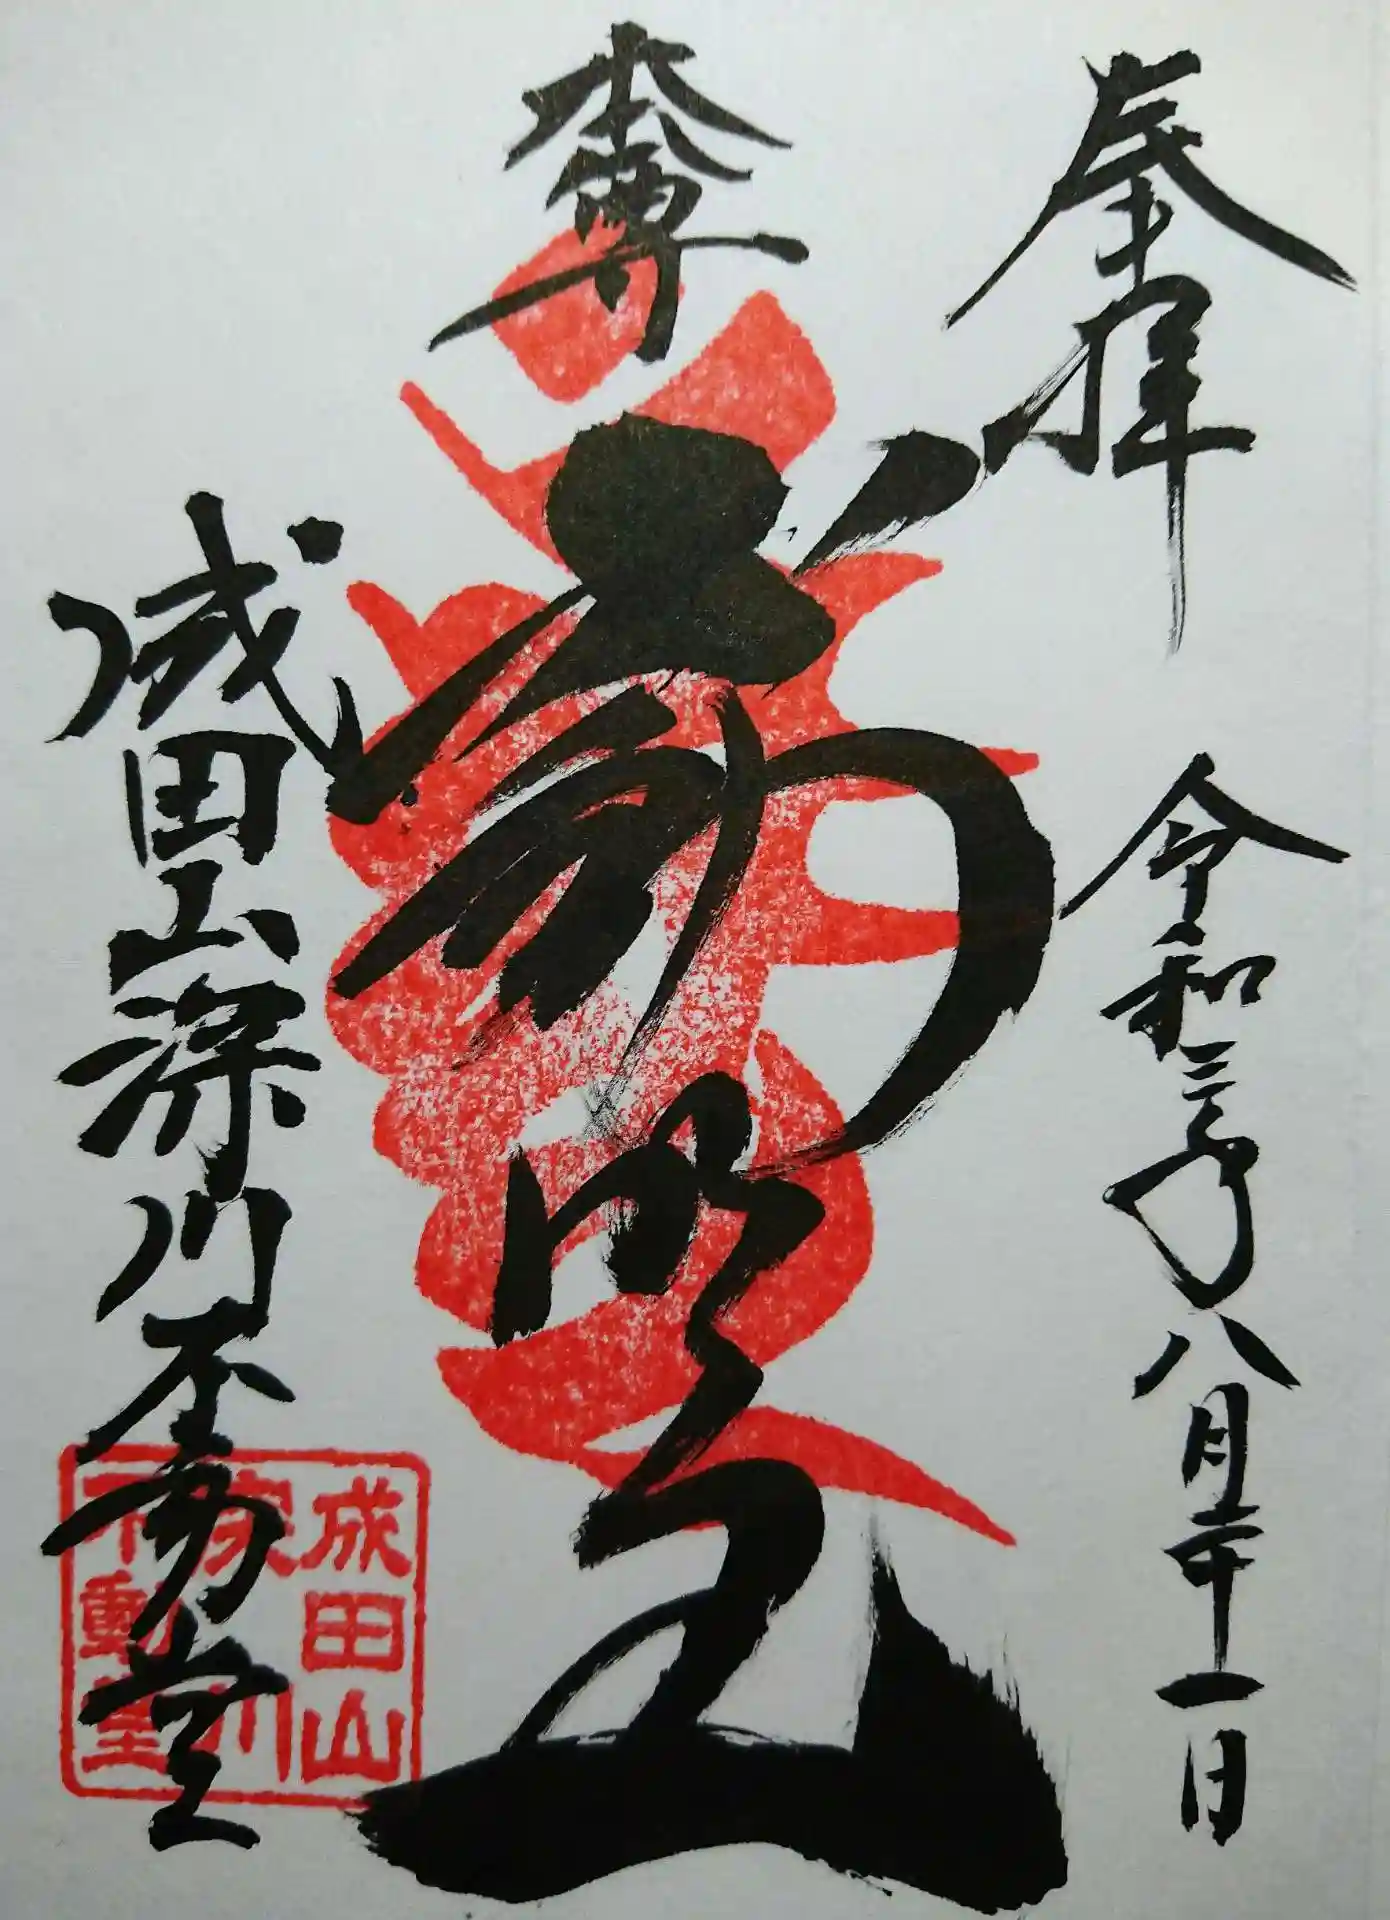 奉拝
令和三年八月二十一日
本尊
不動明王
成田山深川不動堂
成田山
深川
不動堂